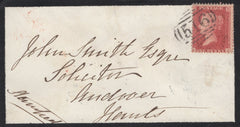 John Smith Esqre
Solicitor
Andover
Hants